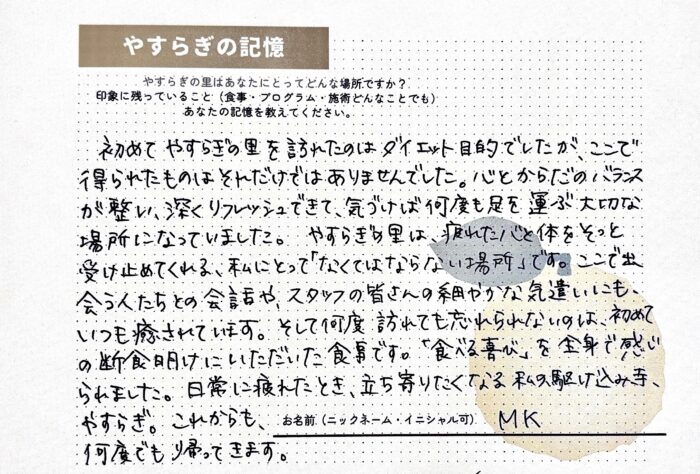 やすらぎの記憶
やすらぎの里はあなたにとってどんな場所ですか？
印象に残っていること（食事・プログラム・施術どんなことでも）
あなたの記憶を教えてください。
初めて やすらぎの里を訪れたのは ダイエット目的でしたが、ここで
得られたものはそれだけではありませんでした。心とからだのバランス
が整い、深くリフレッシュできて、気づけば何度も足を運ぶ大切な
場所になっていました。 やすらぎの里は、疲れた心と体をそっと
受け止めてくれる、私にとって「なくてはならない場所」です。ここで出
会う人たちとの会話や、スタッフの皆さんの細やかな気遣いにも、
いつも癒されています。そして何度訪れても忘れられないのは、初めて
の断食明けにいただいた食事です。「食べる喜び」を全身で感じ
られました。日常に疲れたとき、立ち寄りたくなる私の駆け込み寺、
やすらぎ。これからも、
お名前（ニックネーム・イニシャル可） MK
何度でも帰ってきます。